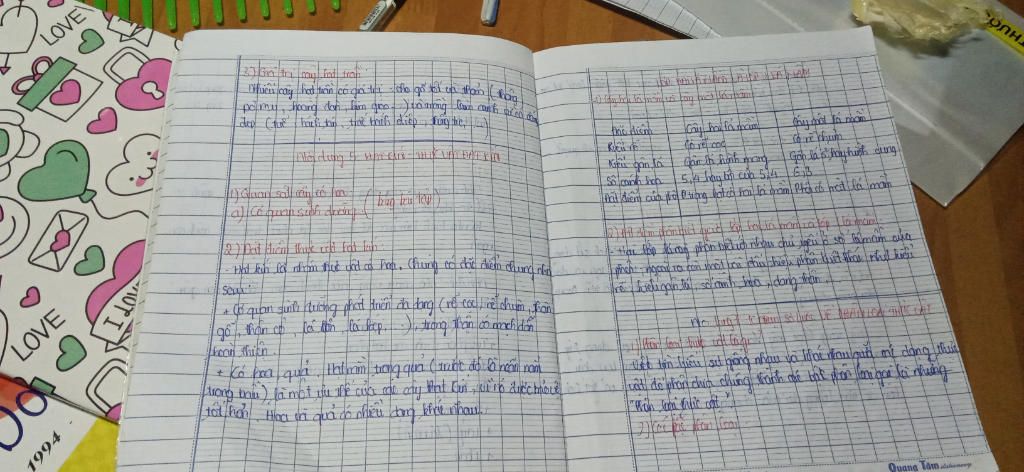 3) Giá trị cây hạt trần
Nhiều cây hạt trần có giá trị: cho gỗ tốt và thơm (thông
pơ mu, hoàng đàn, kim giao...) và trồng làm cảnh vì có dáng
đẹp (tuế, bách tán, trắc bách diệp, thông tre, ...)
Nội dung 5: HẠT KÍN - THỰC VẬT HẠT KÍN
1) Quan sát cây có hoa
a) Cơ quan sinh dưỡng (bảng bài tập)
2) Đặc điểm thực vật hạt kín:
- Hạt kín là nhóm thực vật có hoa. Chúng có đặc điểm chung như
sau:
+ Cơ quan sinh dưỡng phát triển đa dạng (rễ cọc, rễ chùm, thân
gỗ, thân cỏ, lá đơn, lá kép...), trong thân có mạch dẫn
hoàn thiện.
+ Có hoa, quả. Hạt nằm trong quả (trước đó là noãn nằm
trong bầu) là một ưu thế của các cây hạt kín, vì nó được bảo vệ
tốt hơn. Hoa và quả có nhiều dạng khác nhau.
1) Cây hai lá mầm và cây một lá mầm
Đặc điểm Cây hai lá mầm Cây một lá mầm
Kiểu rễ Có rễ cọc Có rễ chùm
Kiểu gân lá Gân lá hình mạng Gân lá // hay hình cung
Số cánh hoa 5,4 hay bội của 5,4 6,3
Đặc điểm của phôi Phôi có hai lá mầm Phôi có một lá mầm
2) Đặc điểm phân biệt giữa lớp hai lá mầm và lớp 1 lá mầm:
- Hai lớp phân biệt với nhau chủ yếu ở số lá mầm của
phôi, ngoài ra còn một vài dấu hiệu phân biệt khác như kiểu
rễ, kiểu gân lá, số cánh hoa, dạng thân, ...
1) Phân loại thực vật là gì?
Việc tìm hiểu sự giống nhau và khác nhau giữa các dạng thực
vật để phân chia chúng thành các bậc phân loại gọi là
"Phân loại thực vật".
2) Các bậc phân loại:
LOVE
LOVE
I LOVE
1994
Quang Tâm